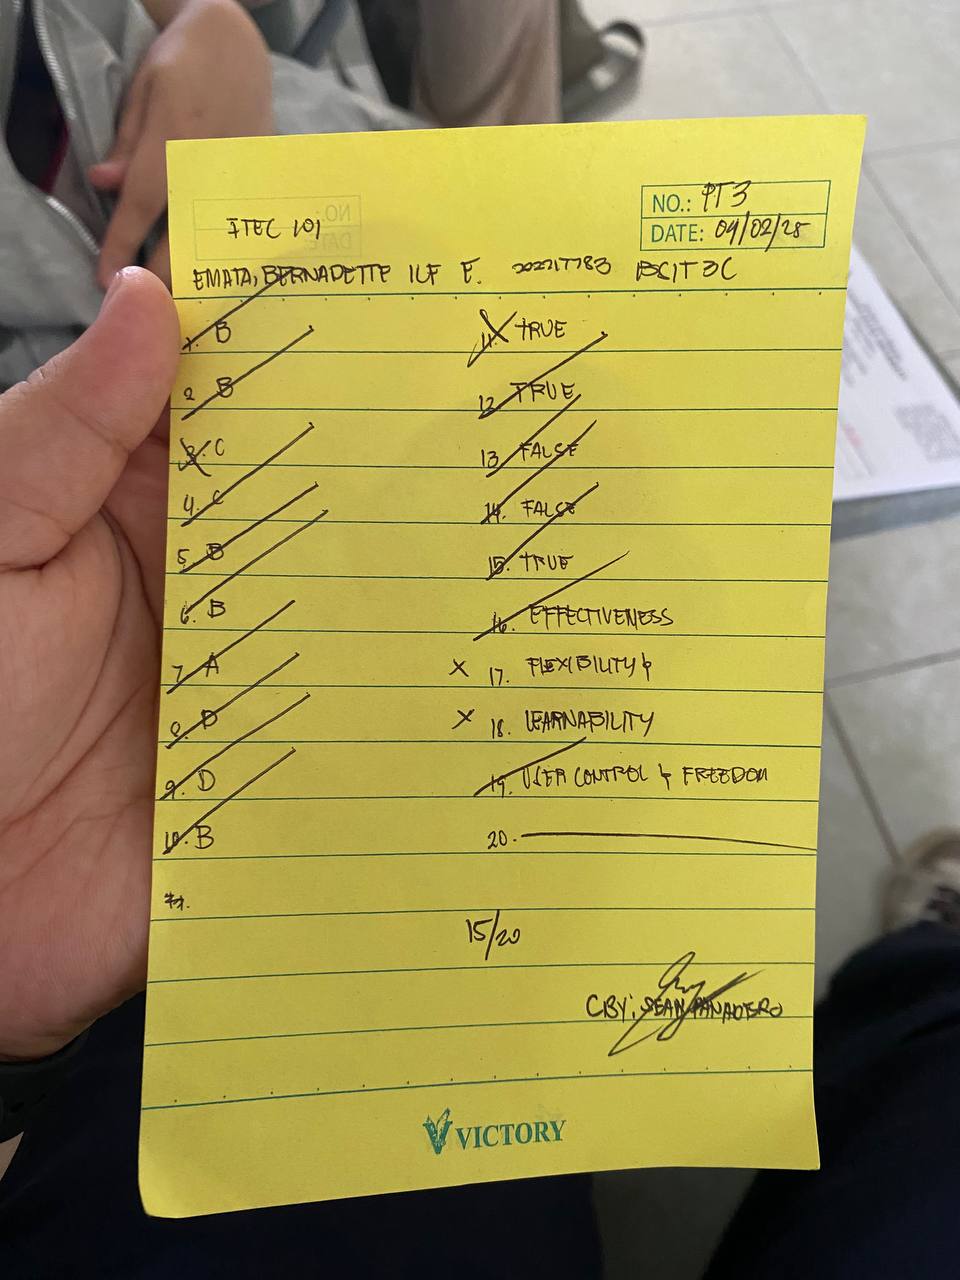 NO.: PT3
ITEC 101
DATE: 04/02/25
EMATA, BERNADETTE ILF E. 202217783 BSIT3C
1. B
2 B
3. C
4. C
5. B
6. B
7 A
8. D
9. D
10. B
11. TRUE
12 TRUE
13 FALSE
14. FALSE
15. TRUE
16. EFFECTIVENESS
X 17. FLEXIBILITY &
X 18. LEARNABILITY
19. USER CONTROL & FREEDOM
20.
15/20
CBY: SEAN PANADERO
VICTORY